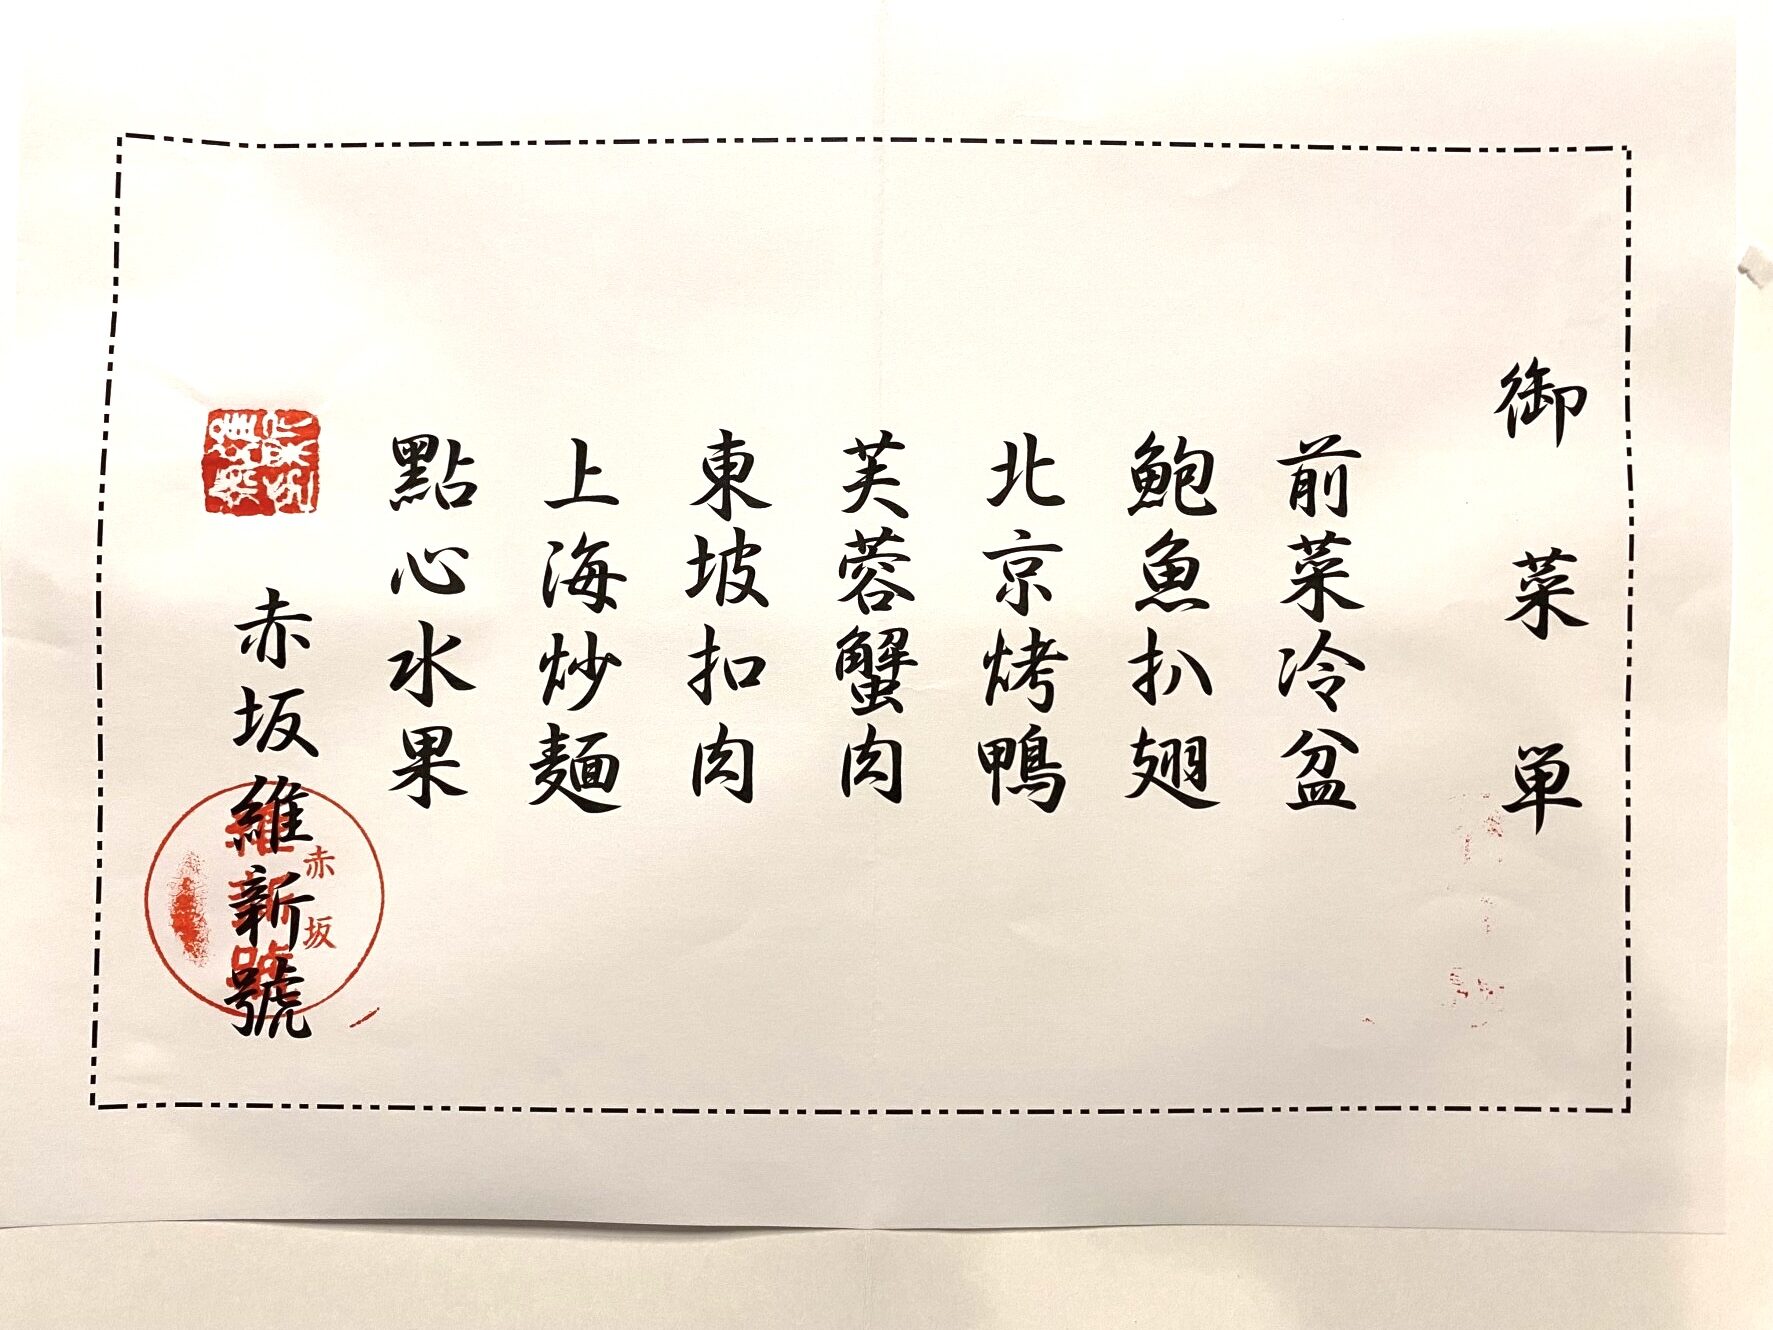 御菜単
前菜冷盆
鮑魚扒翅
北京烤鴨
芙蓉蟹肉
東坡扣肉
上海炒麺
點心水果
赤坂維新號
赤坂
維新號